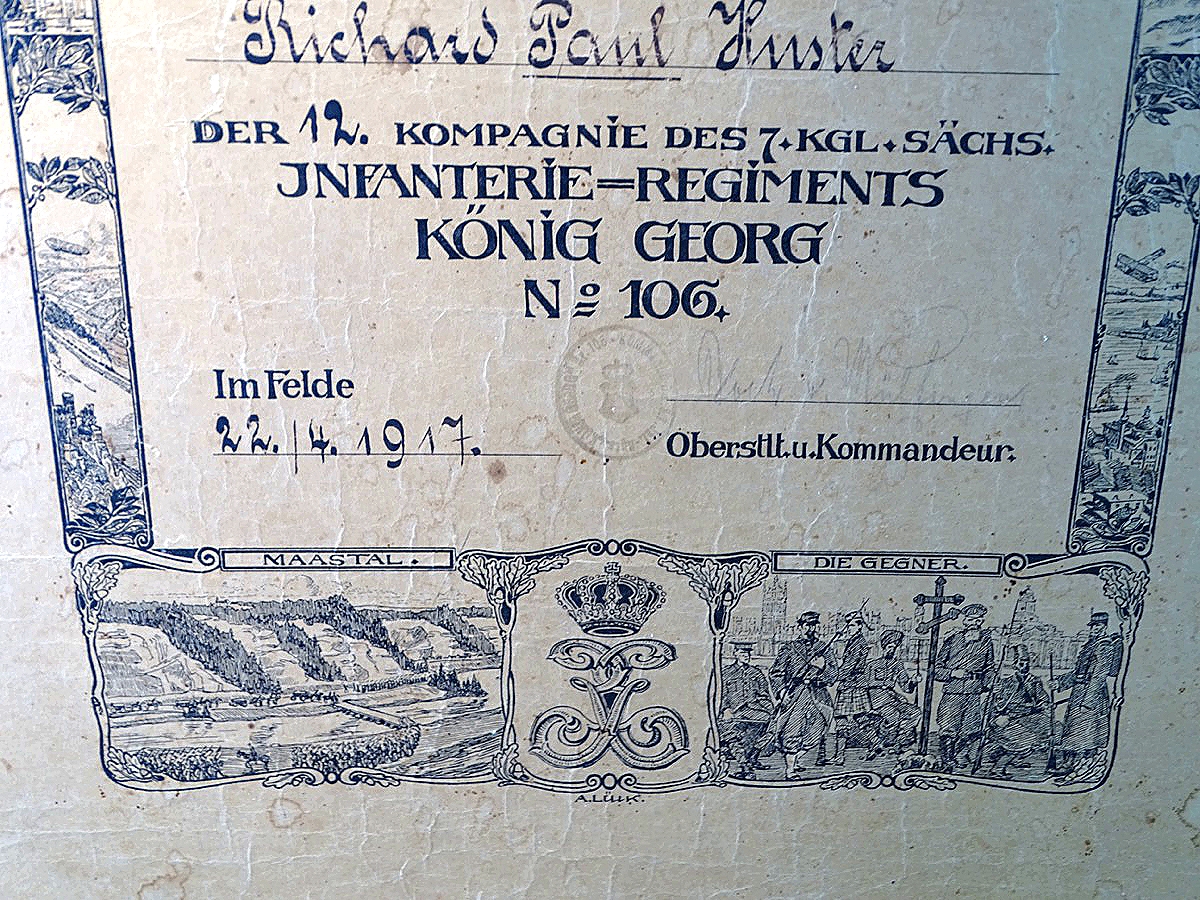 Richard Paul Huster
DER 12. KOMPAGNIE DES 7. KGL. SÄCHS.
JNFANTERIE=REGIMENTS
KÖNIG GEORG
No 106.
Im Felde
22./4. 1917.
Oberstlt. u. Kommandeur.
MAASTAL.
DIE GEGNER.
A. LÜIK.